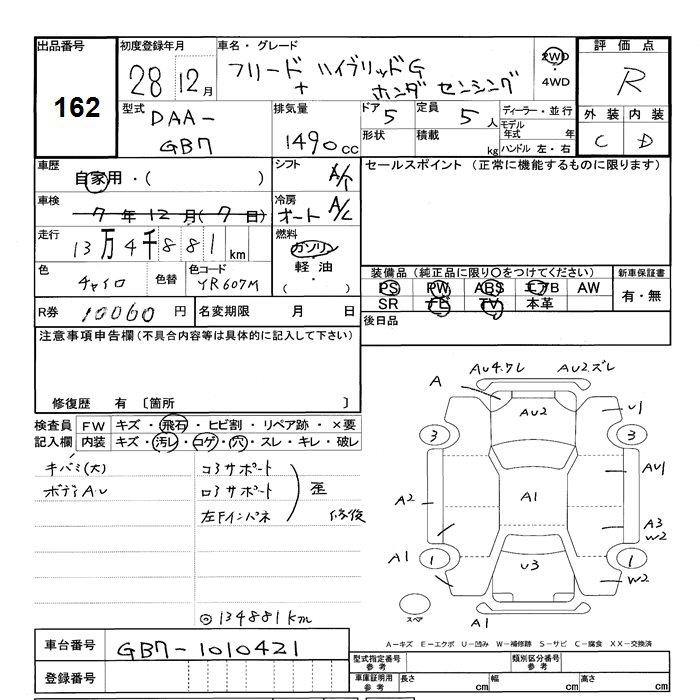 出品番号 初度登録年月 車名・グレード 評価点
162
28 12月 フリード + ハイブリッドG ホンダ センシング 2WD ・ 4WD R
型式 DAA- GB7 排気量 1490cc ドア 5 定員 5人 ディーラー・並行
形状 積載 kg モデル年式 年 ハンドル 左・右
外装 内装
C D
車歴 自家用・( ) シフト A/T セールスポイント (正常に機能するものに限ります)
車検 7年12月(7日) 冷房 オート A/C
走行 13万4千881km 燃料 ガソリン 軽油 ・( )
色 チャイロ 色替 色コード YR607M
装備品 (純正品に限り○をつけてください) 新車保証書
PS PW ABS エアB AW 有・無
SR ナビ TV 本革
R券 10060円 名変期限 月 日 後日品
注意事項申告欄(不具合内容等は具体的に記入して下さい)
修復歴 有 〔箇所
検査員記入欄 FW キズ・飛石・ヒビ割・リペア跡・×要
内装 キズ・汚レ・コゲ・穴・スレ・キレ・破レ
キバミ(大) コアサポート
ボディAU ロアサポート 歪
左Fインパネ 修後
◎134881km
A AU4.ワレ AU2.ズレ
AU2 U1
3 3
AU1
A2 A1
A3
W2
A1 1 U3 1
W2
スペア A1
A-キズ E-エクボ U-凹み W-補修跡 S-サビ C-腐食 XX-交換済
車台番号 GB7-1010421
登録番号
型式指定番号 参考 類別区分番号 参考
車庫証明用 参考 長さ cm 幅 cm 高さ cm